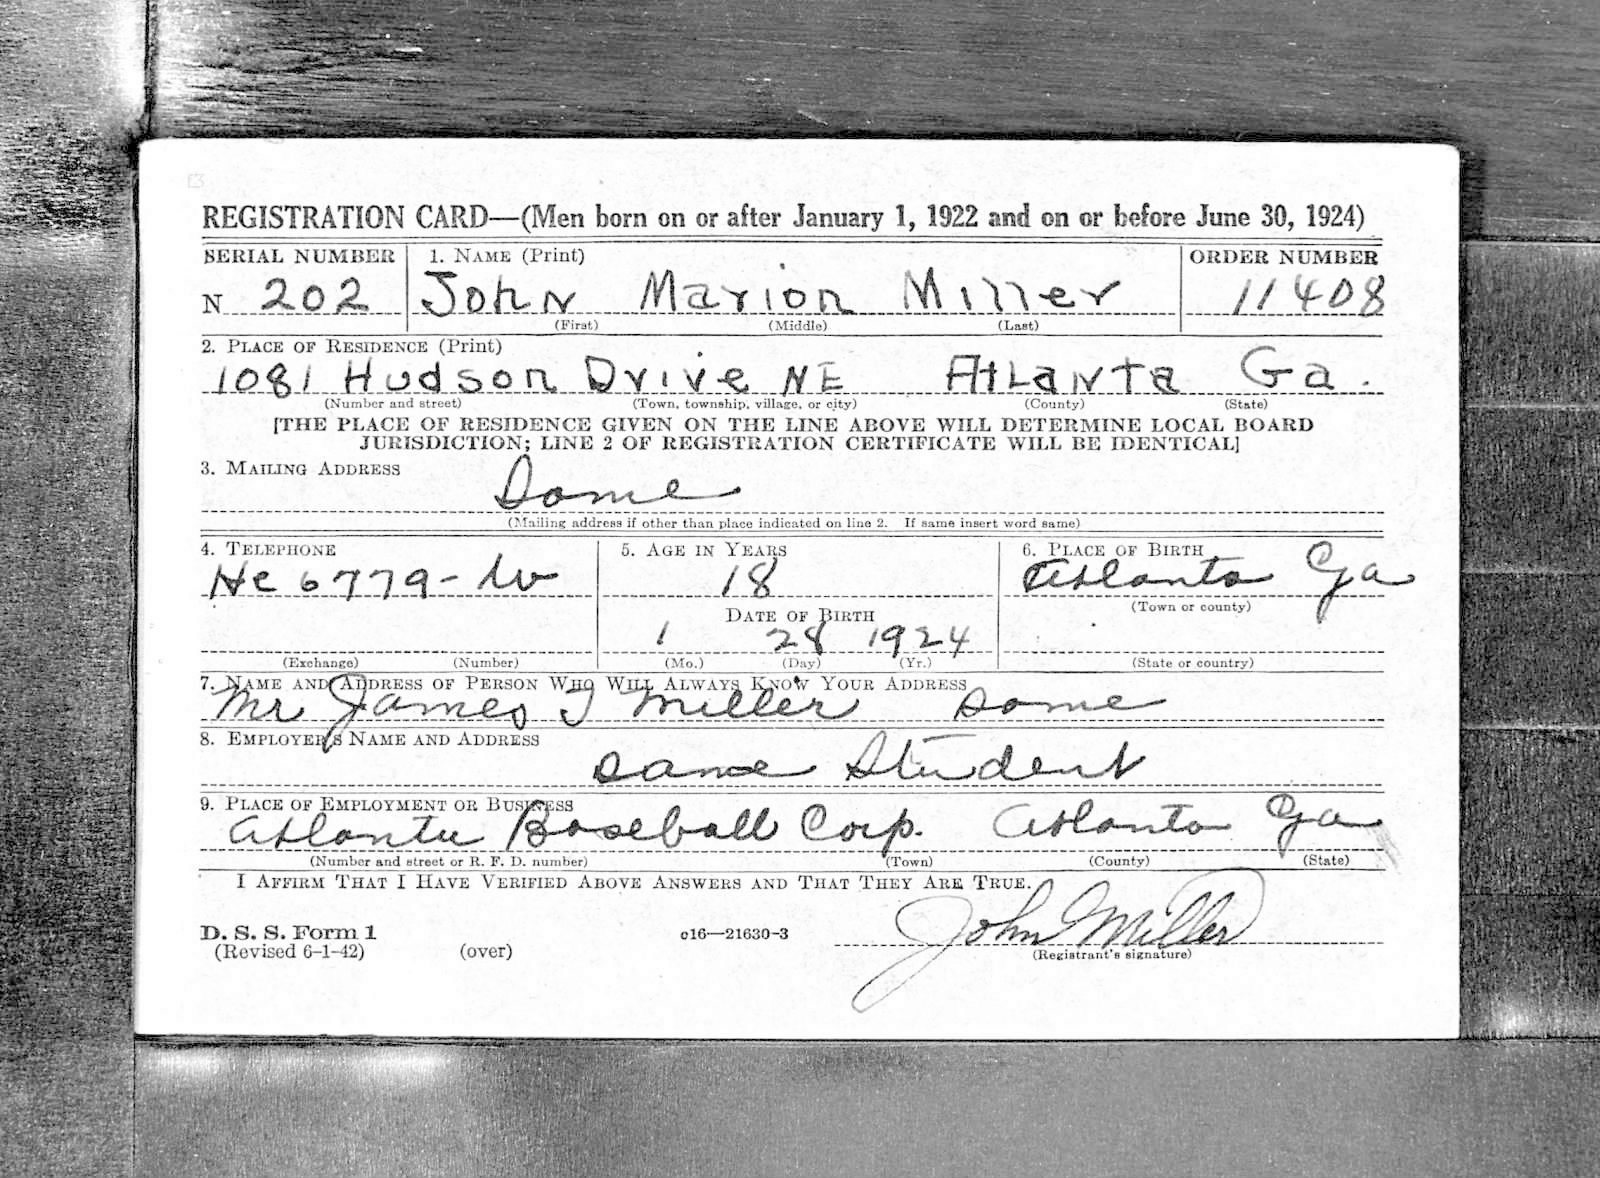 REGISTRATION CARD—(Men born on or after January 1, 1922 and on or before June 30, 1924)
SERIAL NUMBER 1. NAME (Print) ORDER NUMBER
N 202 John Marion Miller 11408
(First) (Middle) (Last)
2. PLACE OF RESIDENCE (Print)
1081 Hudson Drive NE Atlanta Ga.
(Number and street) (Town, township, village, or city) (County) (State)
[THE PLACE OF RESIDENCE GIVEN ON THE LINE ABOVE WILL DETERMINE LOCAL BOARD
JURISDICTION; LINE 2 OF REGISTRATION CERTIFICATE WILL BE IDENTICAL]
3. MAILING ADDRESS
Same
(Mailing address if other than place indicated on line 2. If same insert word same)
4. TELEPHONE 5. AGE IN YEARS 6. PLACE OF BIRTH
He 6779-W 18 Atlanta Ga
(Town or county)
DATE OF BIRTH
1 28 1924
(Exchange) (Number) (Mo.) (Day) (Yr.) (State or country)
7. NAME AND ADDRESS OF PERSON WHO WILL ALWAYS KNOW YOUR ADDRESS
Mr James T Miller Same
8. EMPLOYER'S NAME AND ADDRESS
Same Student
9. PLACE OF EMPLOYMENT OR BUSINESS
Atlanta Baseball Corp. Atlanta Ga
(Number and street or R. F. D. number) (Town) (County) (State)
I AFFIRM THAT I HAVE VERIFIED ABOVE ANSWERS AND THAT THEY ARE TRUE.
John Miller
D. S. S. Form 1 c16—21630-3
(Revised 6-1-42) (over) (Registrant's signature)